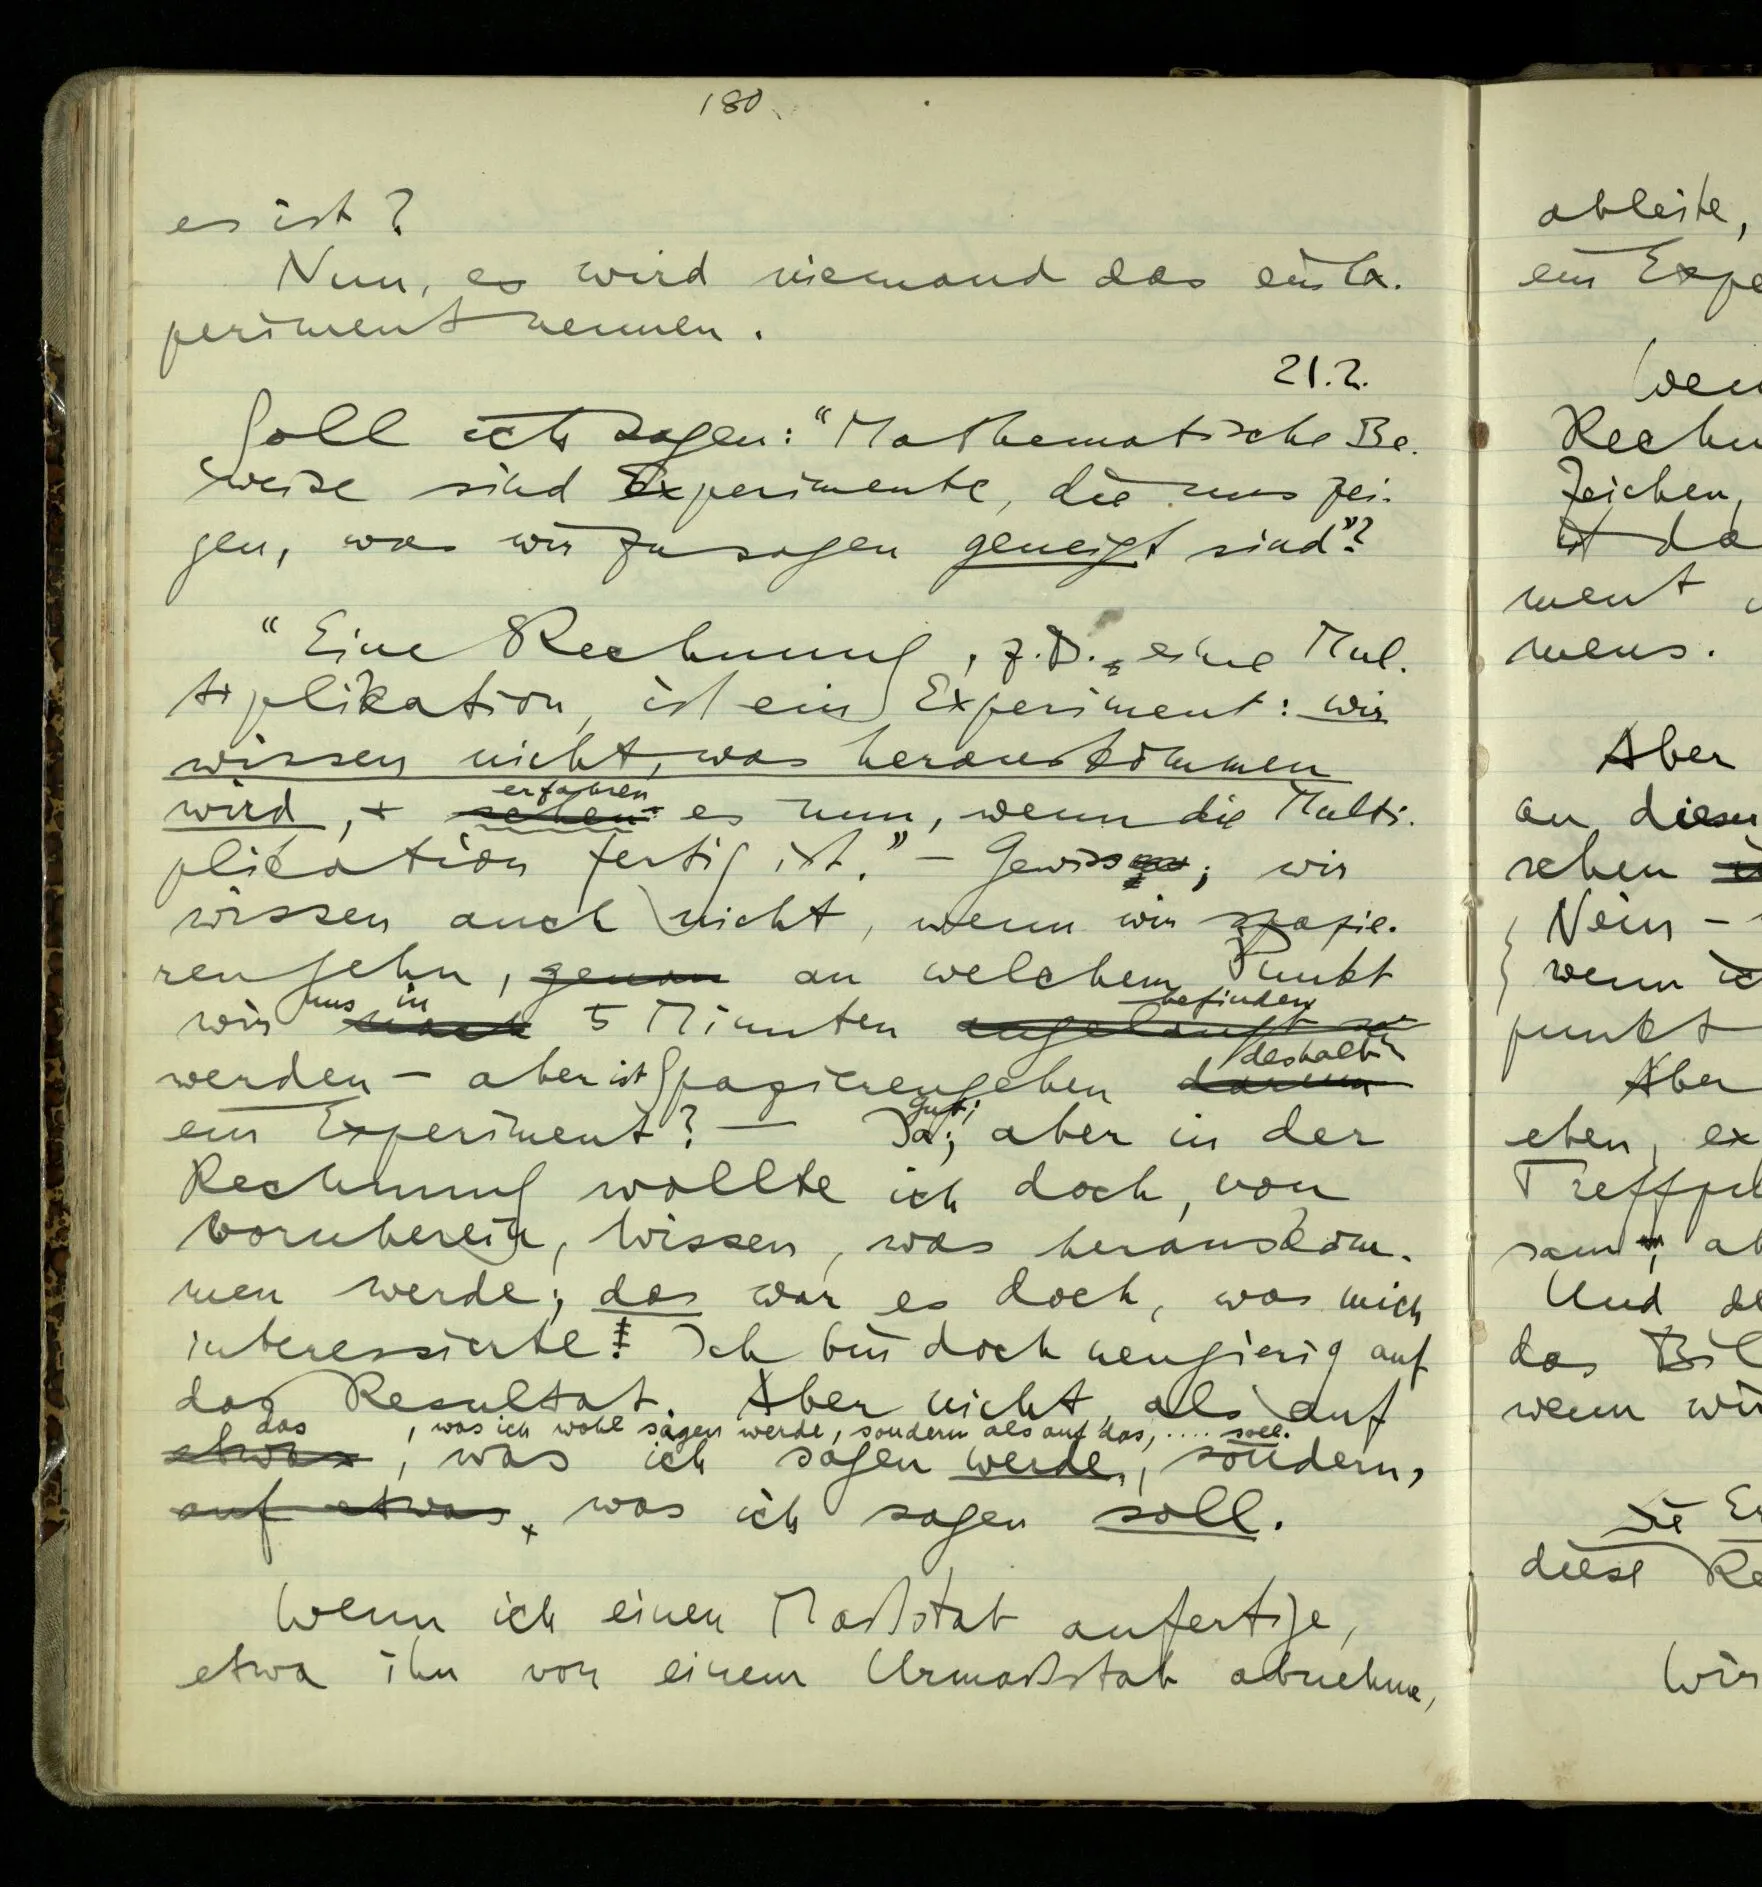 180
es ist?
Nun, es wird niemand das ein Ex-
periment nennen.
21.2.
Soll ich sagen: “Mathematische Be-
weise sind Experimente, die uns zei-
gen, was wir zu sagen geneigt sind”?
“Eine Rechnung, z.B., eine Mul-
tiplikation, ist ein Experiment: wir
wissen nicht, was herauskommen
erfahren
wird, + sehen es nun, wenn die Multi-
plikation fertig ist.” – Gewiss; wir
wissen auch nicht, wenn wir spazie-
rengehn, genau an welchem Punkt
uns in befinden
wir nach 5 Minuten angelangt sein
deshalb
werden – aber ist Spazierengehen darum
gut;
ein Experiment? — Ja; aber in der
Rechnung wollte ich doch, von
vornherein, wissen, was herauskom-
men werde; das war es doch, was mich
interessierte! Ich bin doch neugierig auf
das Resultat. Aber nicht, als auf
das , was ich wohl sagen werde, sondern als auf das, .... soll.
etwas, was ich sagen werde, sondern,
auf etwas, was ich sagen soll.
Wenn ich einen Maßstab anfertige,
etwa ihn von einem Urmaßstab abnehme,
ableite,
ein Expe
Wen
Rechn
Zeichen,
ist da
ment
mens.
Aber
an diesen
sehen
Nein –
wenn ic
punkt
Aber
eben, ex
Treffpu
sam; ab
Und de
das Bil
wenn wir
Die Er
diese Re
Wir